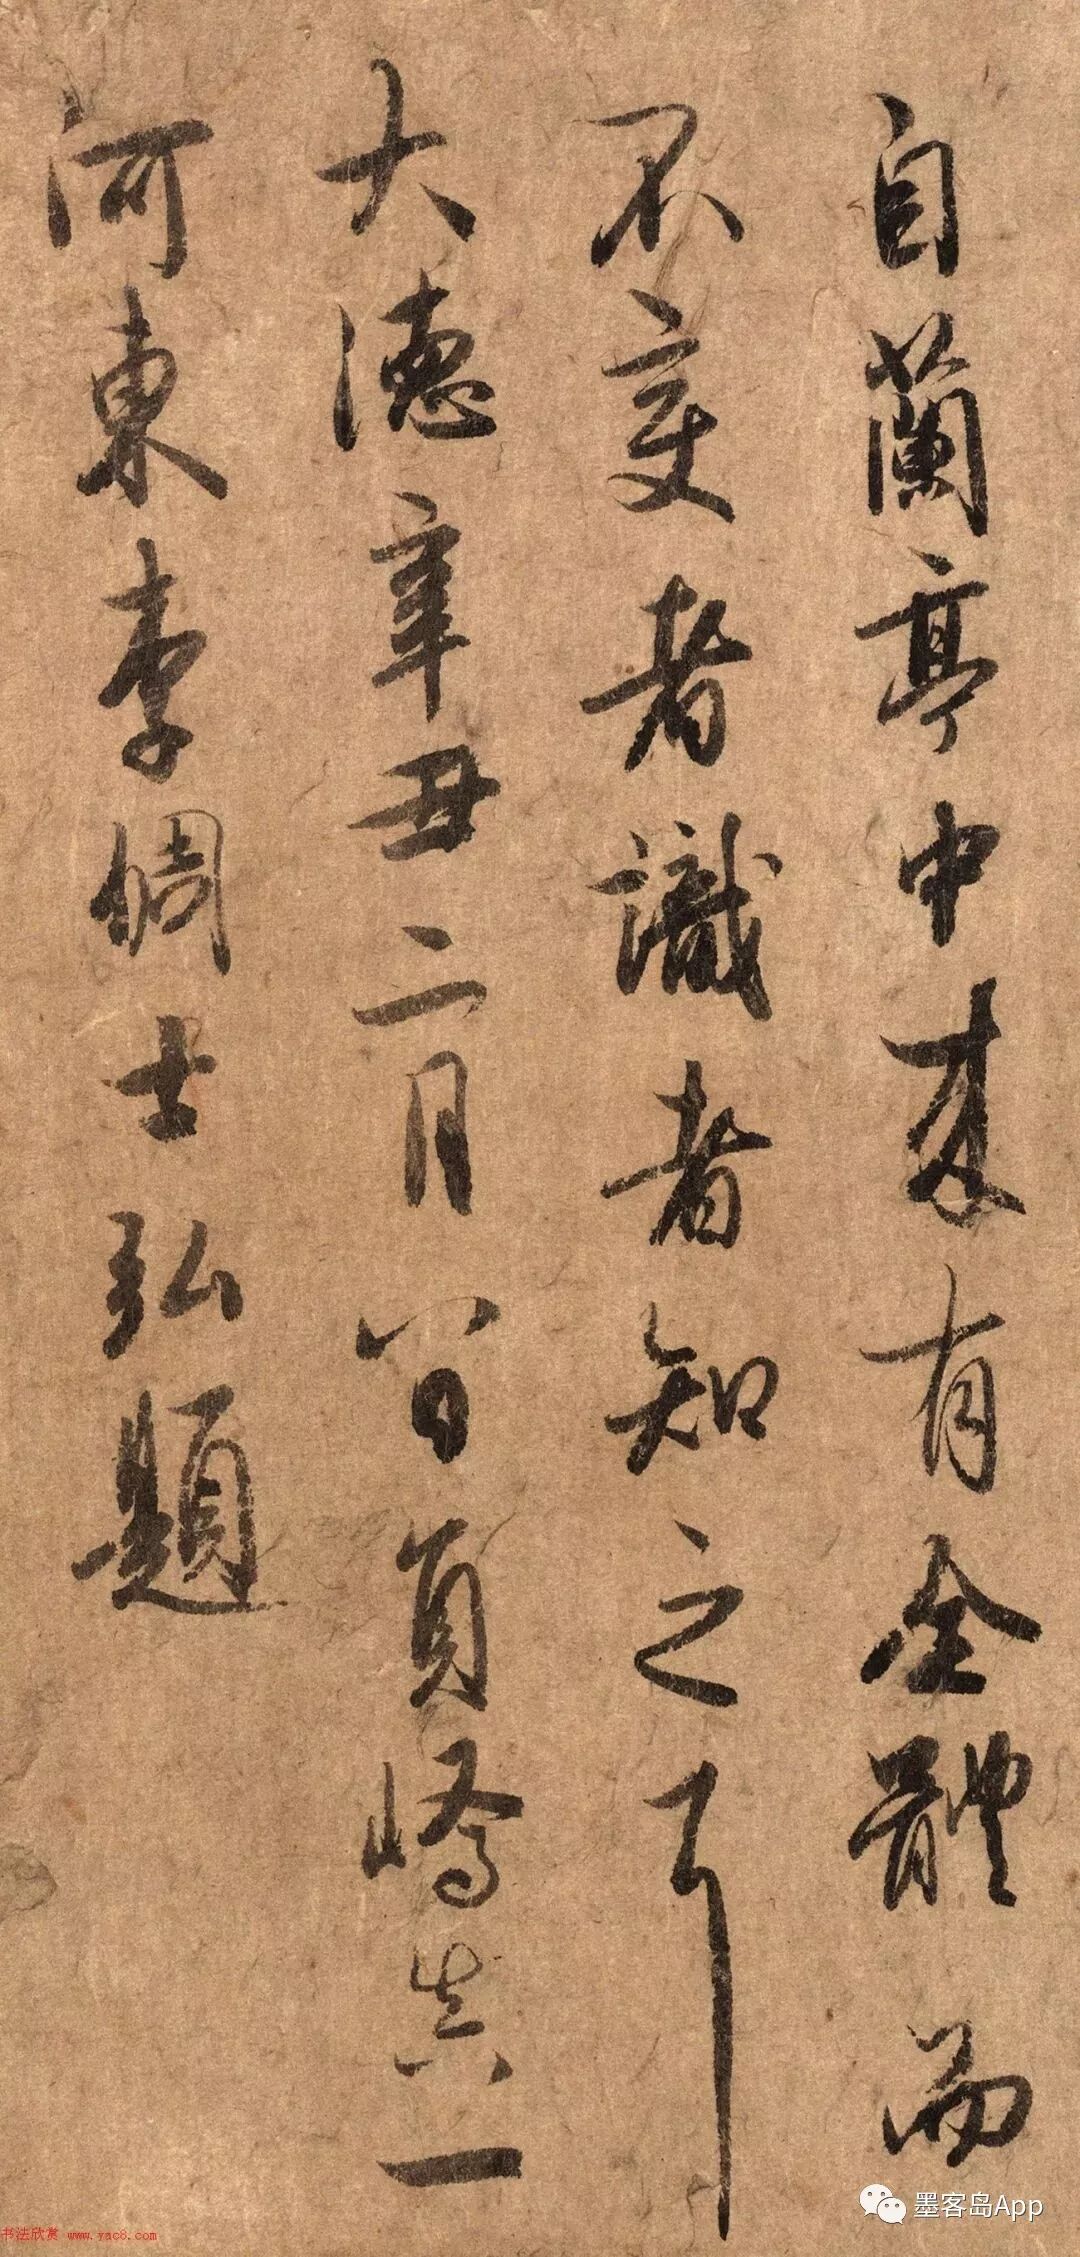 自蘭亭中來有全體而
不變者識者知之耳
大德辛丑二月八日員嶠真一
河東李倜士弘題
墨客岛App
书法欣赏 www.yac8.com